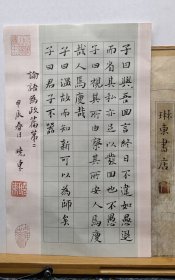 子曰與吾回言終日不違如愚退
而省其私亦足以發回也不愚
子曰視其所由察其所安人焉廋
哉人焉廋哉
子曰溫故而知新可以為師矣
子曰君子不器
論語為政篇第二
甲辰春日 曉東
琳東書店